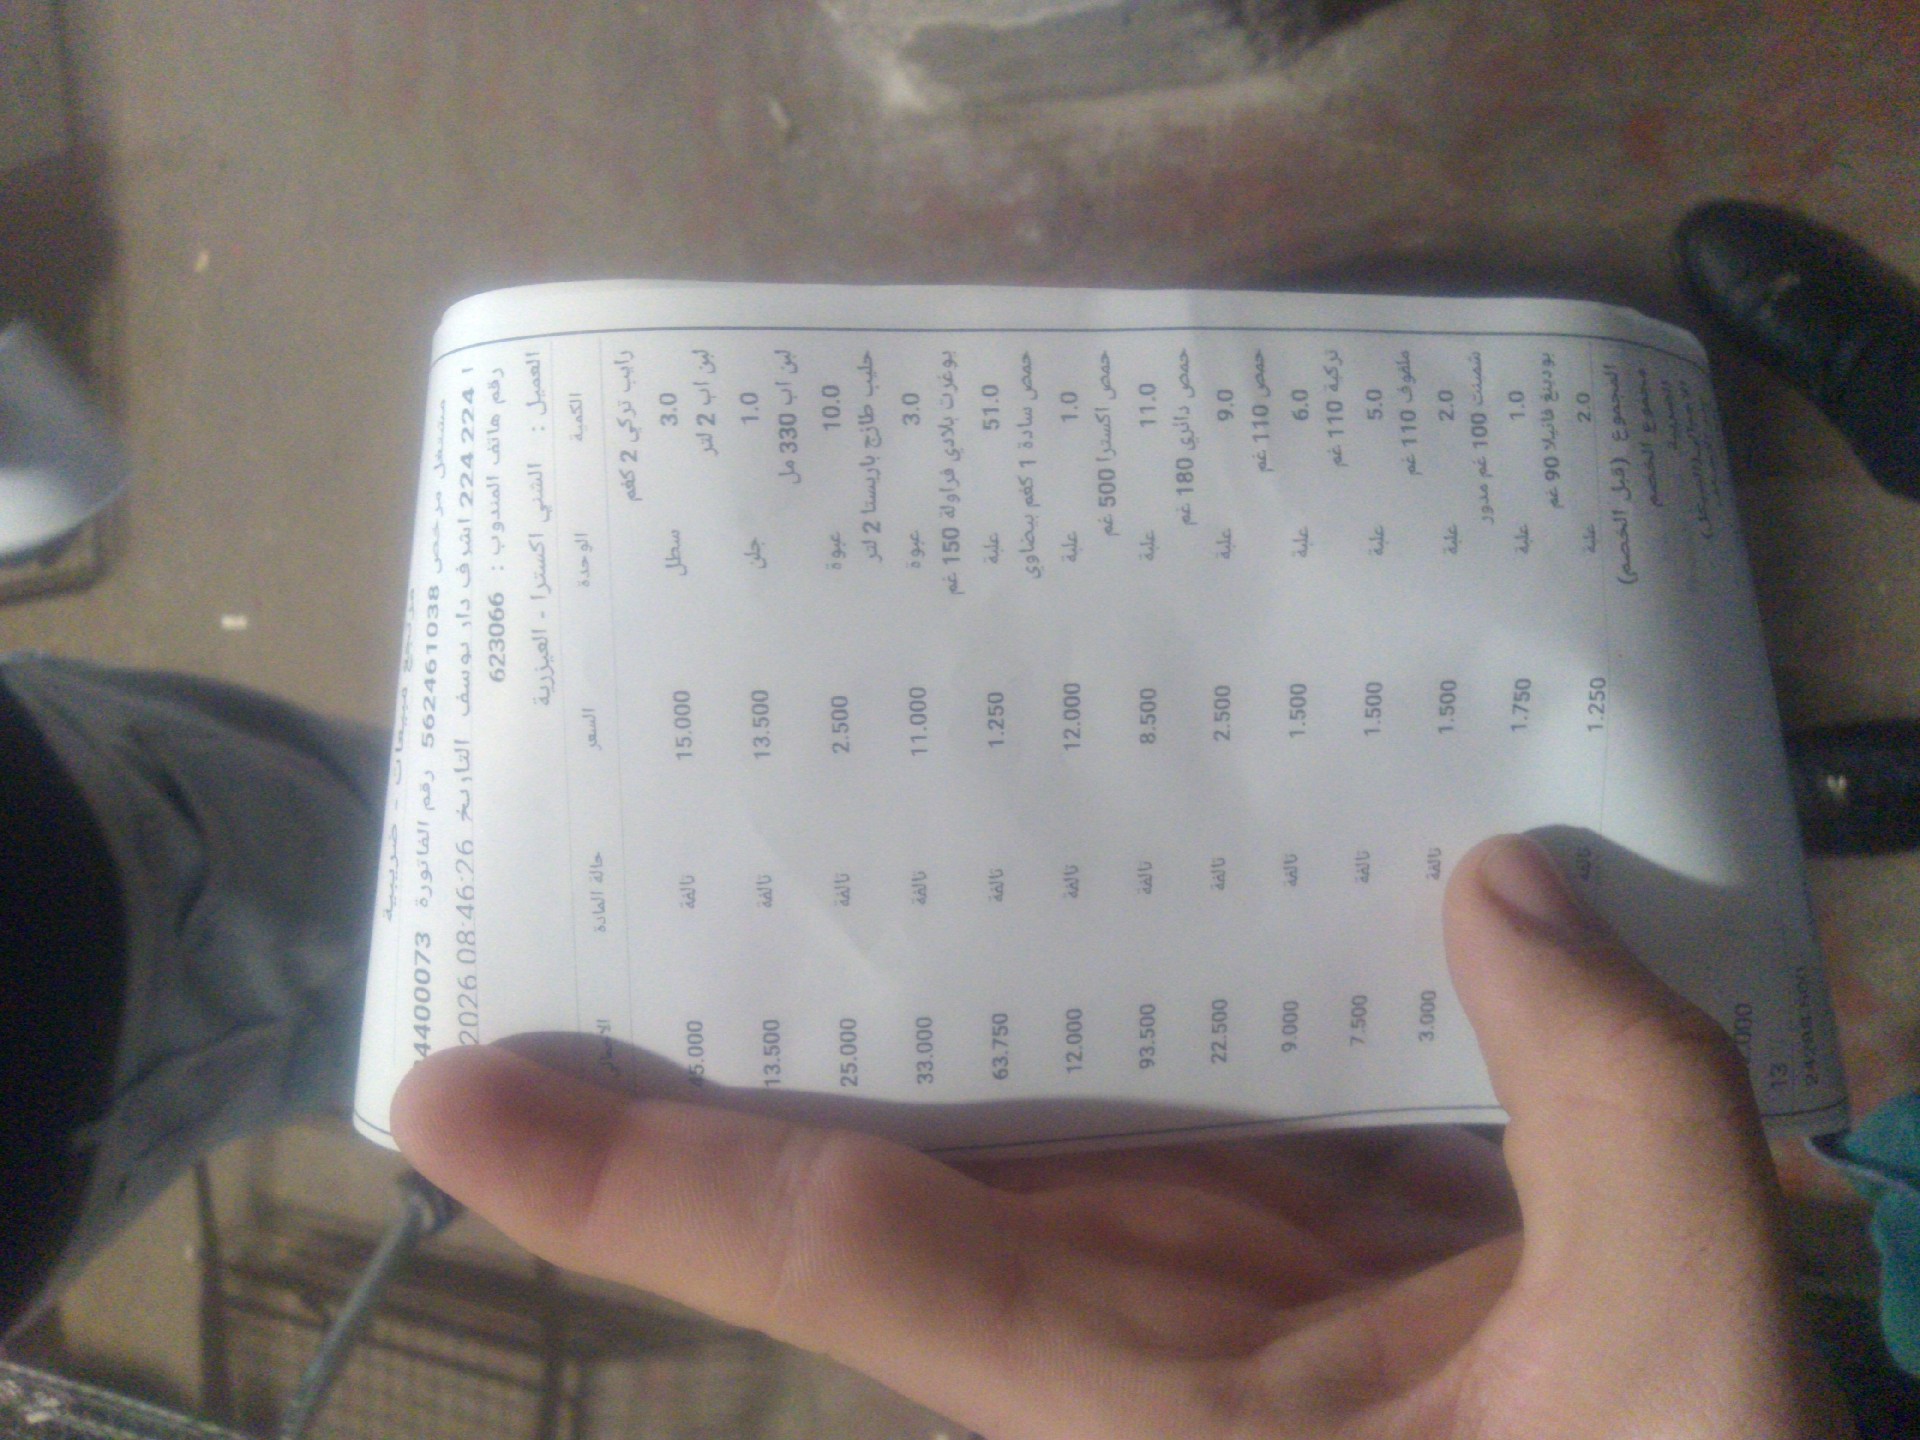 مرتجع مبيعات - ضريبية
مشغل مرخص 562461038 رقم الفاتورة 4400073
224 224 1 اشرف دار يوسف التاريخ 2026 08:46:26
رقم هاتف المندوب : 623066
العميل : الشلبي اكسترا - العيزرية
الكمية الوحدة السعر حالة المادة
رايب تركي 2 كغم
3.0 سطل 15.000 تالفة 45.000
لبن اب 2 لتر
1.0 جلن 13.500 تالفة 13.500
لبن اب 330 مل
10.0 عبوة 2.500 تالفة 25.000
حليب طازج باريستا 2 لتر
3.0 عبوة 11.000 تالفة 33.000
يوغرت بلادي فراولة 150 غم
51.0 علبة 1.250 تالفة 63.750
حمص سادة 1 كغم بيضاوي
1.0 علبة 12.000 تالفة 12.000
حمص اكسترا 500 غم
11.0 علبة 8.500 تالفة 93.500
حمص دائري 180 غم
9.0 علبة 2.500 تالفة 22.500
حمص 110 غم
6.0 علبة 1.500 تالفة 9.000
تركية 110 غم
5.0 علبة 1.500 تالفة 7.500
ملفوف 110 غم
2.0 علبة 1.500 تالفة 3.000
شمينت 100 غم مدور
1.0 علبة 1.750
بودينغ فانيلا 90 غم
2.0 علبة 1.250 تالفة
المجموع (قبل الخصم)
مجموع الخصم
الضريبة
13